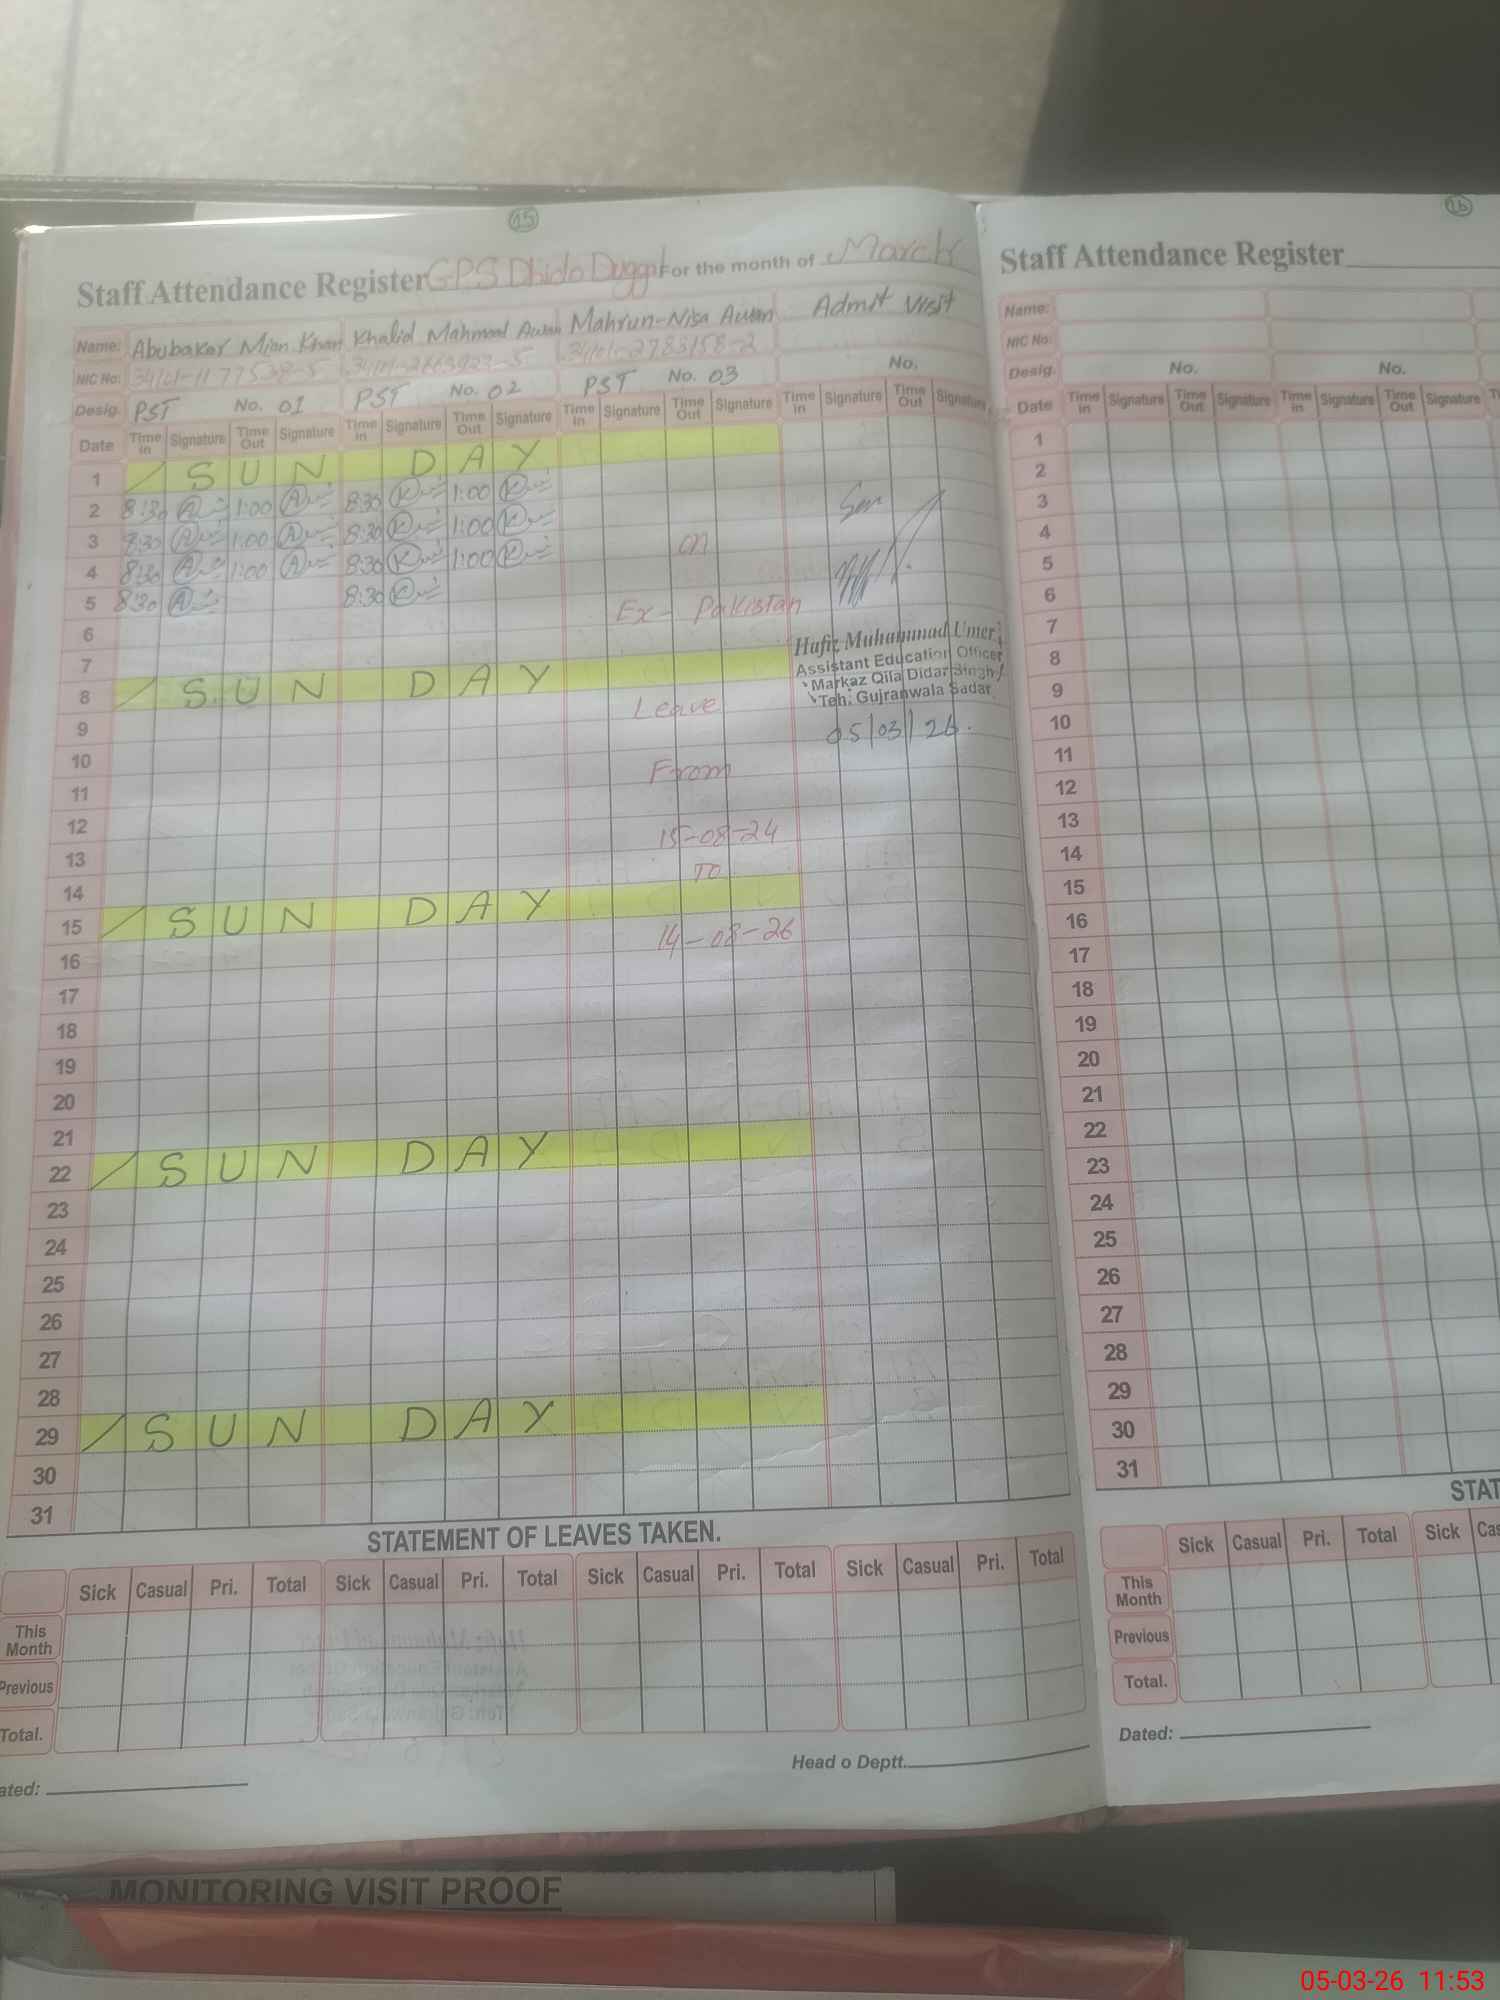 15
Staff Attendance Register GPS Dhido Duggal For the month of March
Name: Abubakar Mian Khan Khalid Mahmood Awan Mahrun-Nisa Awan Admit Visit
NIC No: 34101-1177538-5 34101-2663923-5 34101-2783158-2
Desig. PST No. 01 PST No. 02 PST No. 03 No.
Date Time In Signature Time Out Signature Time In Signature Time Out Signature Time In Signature Time Out Signature Time In Signature Time Out Signature
1 SUN DAY
2 8:30 1:00 8:30 1:00
3 8:30 1:00 8:30 1:00 on
4 8:30 1:00 8:30 1:00
5 8:30 8:30 Ex- Pakistan
6
7
8 SUN DAY Leave
9
10 From
11
12 15-08-24
13 TO
14
15 SUN DAY 14-08-26
16
17
18
19
20
21
22 SUN DAY
23
24
25
26
27
28
29 SUN DAY
30
31
Hafiz Muhammad Umer
Assistant Education Officer
Markaz Qila Didar Singh
Teh: Gujranwala Sadar
05/03/26.
STATEMENT OF LEAVES TAKEN.
Sick Casual Pri. Total Sick Casual Pri. Total Sick Casual Pri. Total Sick Casual Pri. Total
This Month
Previous
Total.
ated:
Head o Deptt.
16
Staff Attendance Register
Name:
NIC No:
Desig. No. No.
Date Time In Signature Time Out Signature Time In Signature Time Out Signature
1
2
3
4
5
6
7
8
9
10
11
12
13
14
15
16
17
18
19
20
21
22
23
24
25
26
27
28
29
30
31
STAT
Sick Casual Pri. Total Sick Cas
This Month
Previous
Total.
Dated:
MONITORING VISIT PROOF
05-03-26 11:53